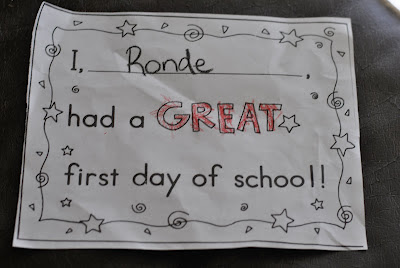 I, Ronde,
had a GREAT
first day of school!